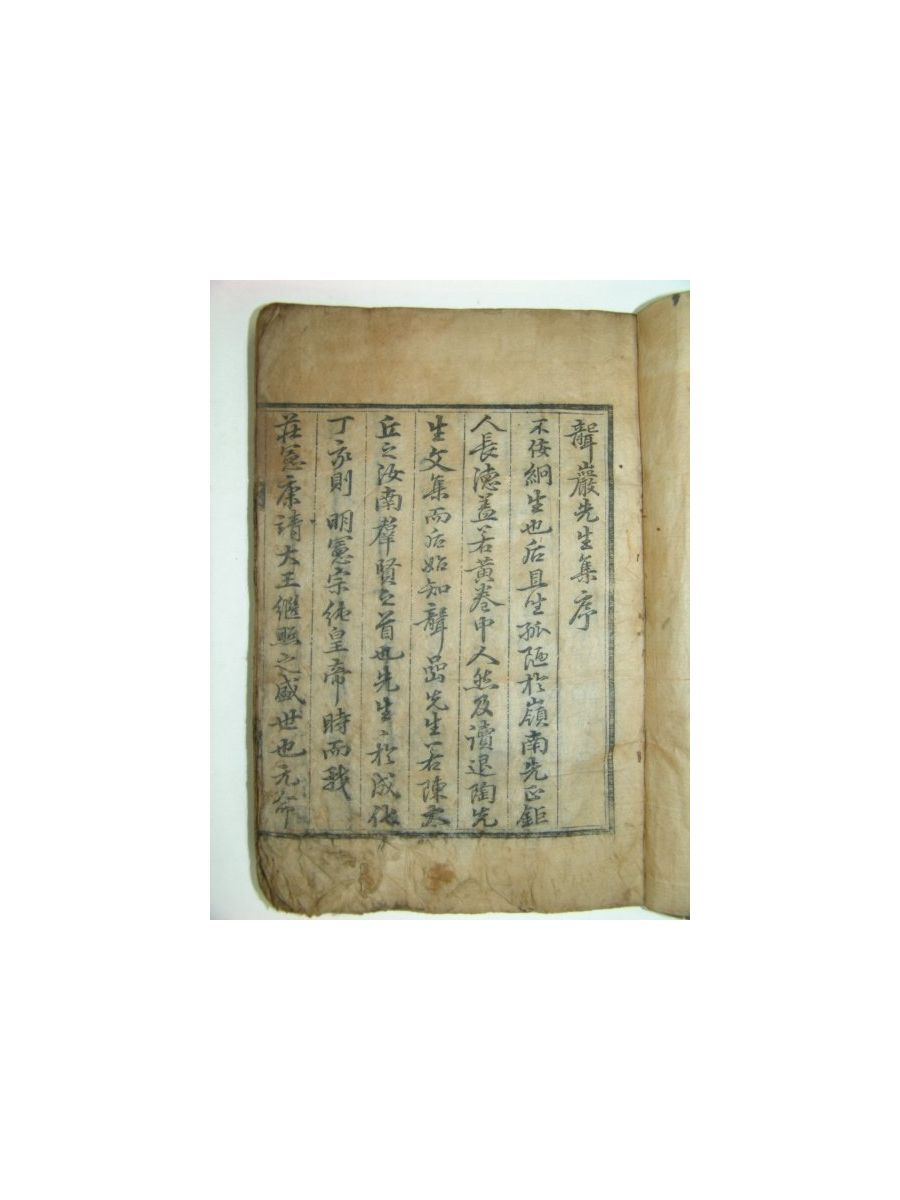 聾巖先生集序
不佞絅生也后且生孤陋於嶺南先正鉅
人長德盖若黃卷中人然及讀退陶先
生文集而后始知聾嵒先生若陳太
丘之汝南羣賢之首也先生〻於成化
丁亥則 明憲宗純皇帝時而我
莊憲康靖大王繼照之盛世也元命